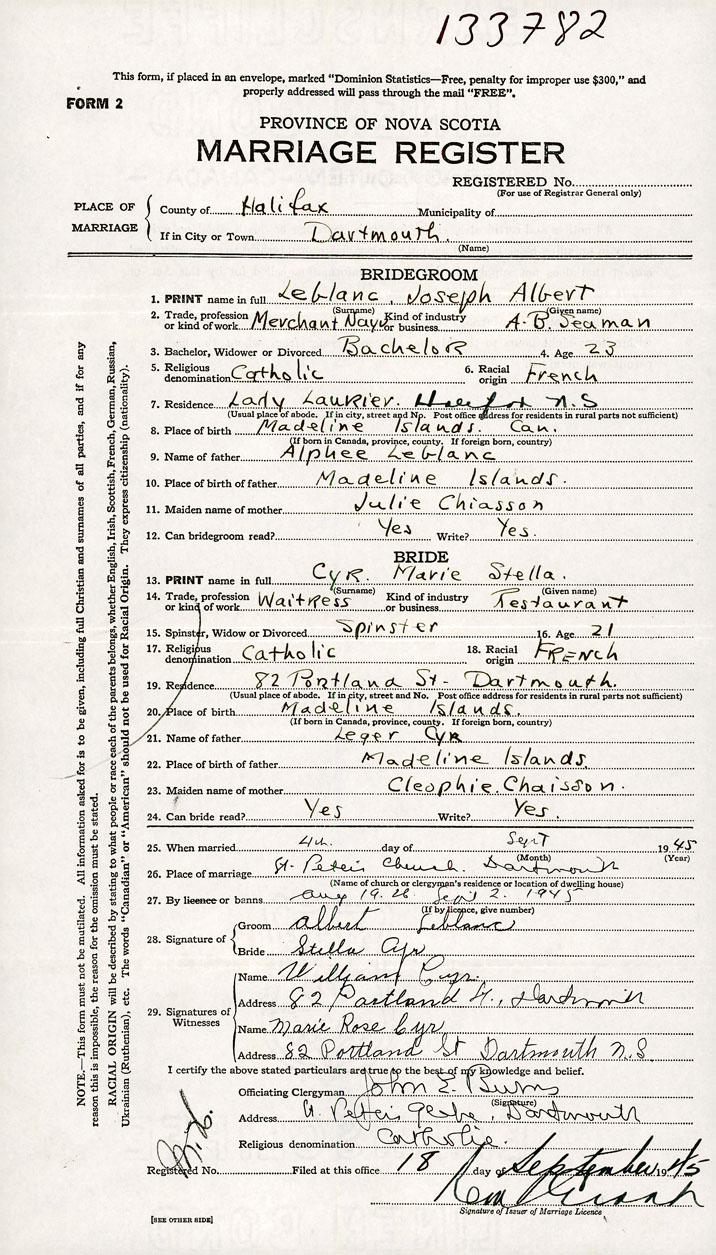 133782
This form, if placed in an envelope, marked "Dominion Statistics—Free, penalty for improper use $300," and
properly addressed will pass through the mail "FREE".
FORM 2
PROVINCE OF NOVA SCOTIA
MARRIAGE REGISTER
REGISTERED No.
(For use of Registrar General only)
PLACE OF MARRIAGE
County of Halifax Municipality of
If in City or Town Dartmouth.
(Name)
BRIDEGROOM
1. PRINT name in full Leblanc, Joseph Albert
(Surname) (Given name)
2. Trade, profession or kind of work Merchant Navy Kind of industry or business A.B. Seaman
3. Bachelor, Widower or Divorced Bachelor 4. Age 23
5. Religious denomination Catholic 6. Racial origin French
7. Residence Lady Laurier. Halifax N.S
(Usual place of abode. If in city, street and No. Post office address for residents in rural parts not sufficient)
8. Place of birth Madeline Islands. Can.
(If born in Canada, province, county. If foreign born, country)
9. Name of father Alphee Leblanc
10. Place of birth of father Madeline Islands.
11. Maiden name of mother Julie Chiasson
12. Can bridegroom read? Yes Write? Yes.
BRIDE
13. PRINT name in full Cyr. Marie Stella.
(Surname) (Given name)
14. Trade, profession or kind of work Waitress Kind of industry or business Restaurant
15. Spinster, Widow or Divorced Spinster 16. Age 21
17. Religious denomination Catholic 18. Racial origin FRENCH
19. Residence 82 Portland St- Dartmouth.
(Usual place of abode. If in city, street and No. Post office address for residents in rural parts not sufficient)
20. Place of birth Madeline Islands.
(If born in Canada, province, county. If foreign born, country)
21. Name of father Leger Cyr
22. Place of birth of father Madeline Islands
23. Maiden name of mother Cleophie Chaisson.
24. Can bride read? Yes Write? Yes.
25. When married 4th day of Sept 1945
(Month) (Year)
26. Place of marriage St. Peter's Church. Dartmouth
(Name of church or clergyman's residence or location of dwelling house)
27. By licence or banns Aug 19. 26 Sept 2. 1945
(If by licence, give number)
28. Signature of
Groom Albert Leblanc
Bride Stella Cyr
29. Signatures of Witnesses
Name William Cyr.
Address 82 Portland St., Dartmouth
Name Marie Rose Cyr
Address 82 Portland St Dartmouth N.S.
I certify the above stated particulars are true to the best of my knowledge and belief.
Officiating Clergyman John E. Burns
(Signature)
Address St. Peters Glebe, Dartmouth
Religious denomination Catholic.
Registered No. Filed at this office 18 day of September, 1945
Signature of Issuer of Marriage Licence
[SEE OTHER SIDE]
NOTE.—This form must not be mutilated. All information asked for is to be given, including full Christian and surnames of all parties, and if for any
reason this is impossible, the reason for the omission must be stated.
RACIAL ORIGIN will be described by stating to what people or race each of the parents belongs, whether English, Irish, Scottish, French, German, Russian,
Ukrainian (Ruthenian), etc. The words "Canadian" or "American" should not be used for Racial Origin. They express citizenship (nationality).